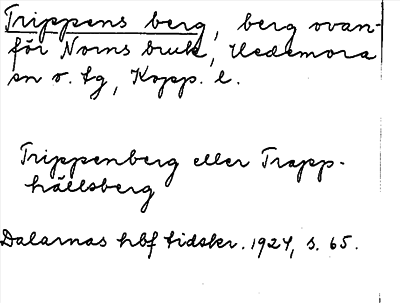 Trippens berg, berg ovan-
för Norns bruk, Hedemora
sn o. tg, Kopp. l.
Trippenberg eller Trapp-
hällsberg
Dalarnas hbf tidskr. 1924, s. 65.